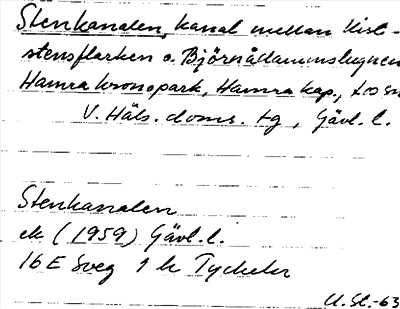 Stenkanalen, kanal mellan Kist-
stensflarken o. Björnådammslugnen
Hamra kronopark, Hamra kap., Los sn
V. Häls. doms. tg, Gävl. l.
Stenkanalen
ek (1959) Gävl. l.
16 E Sveg 1 h Tyckeln
U. St. -63